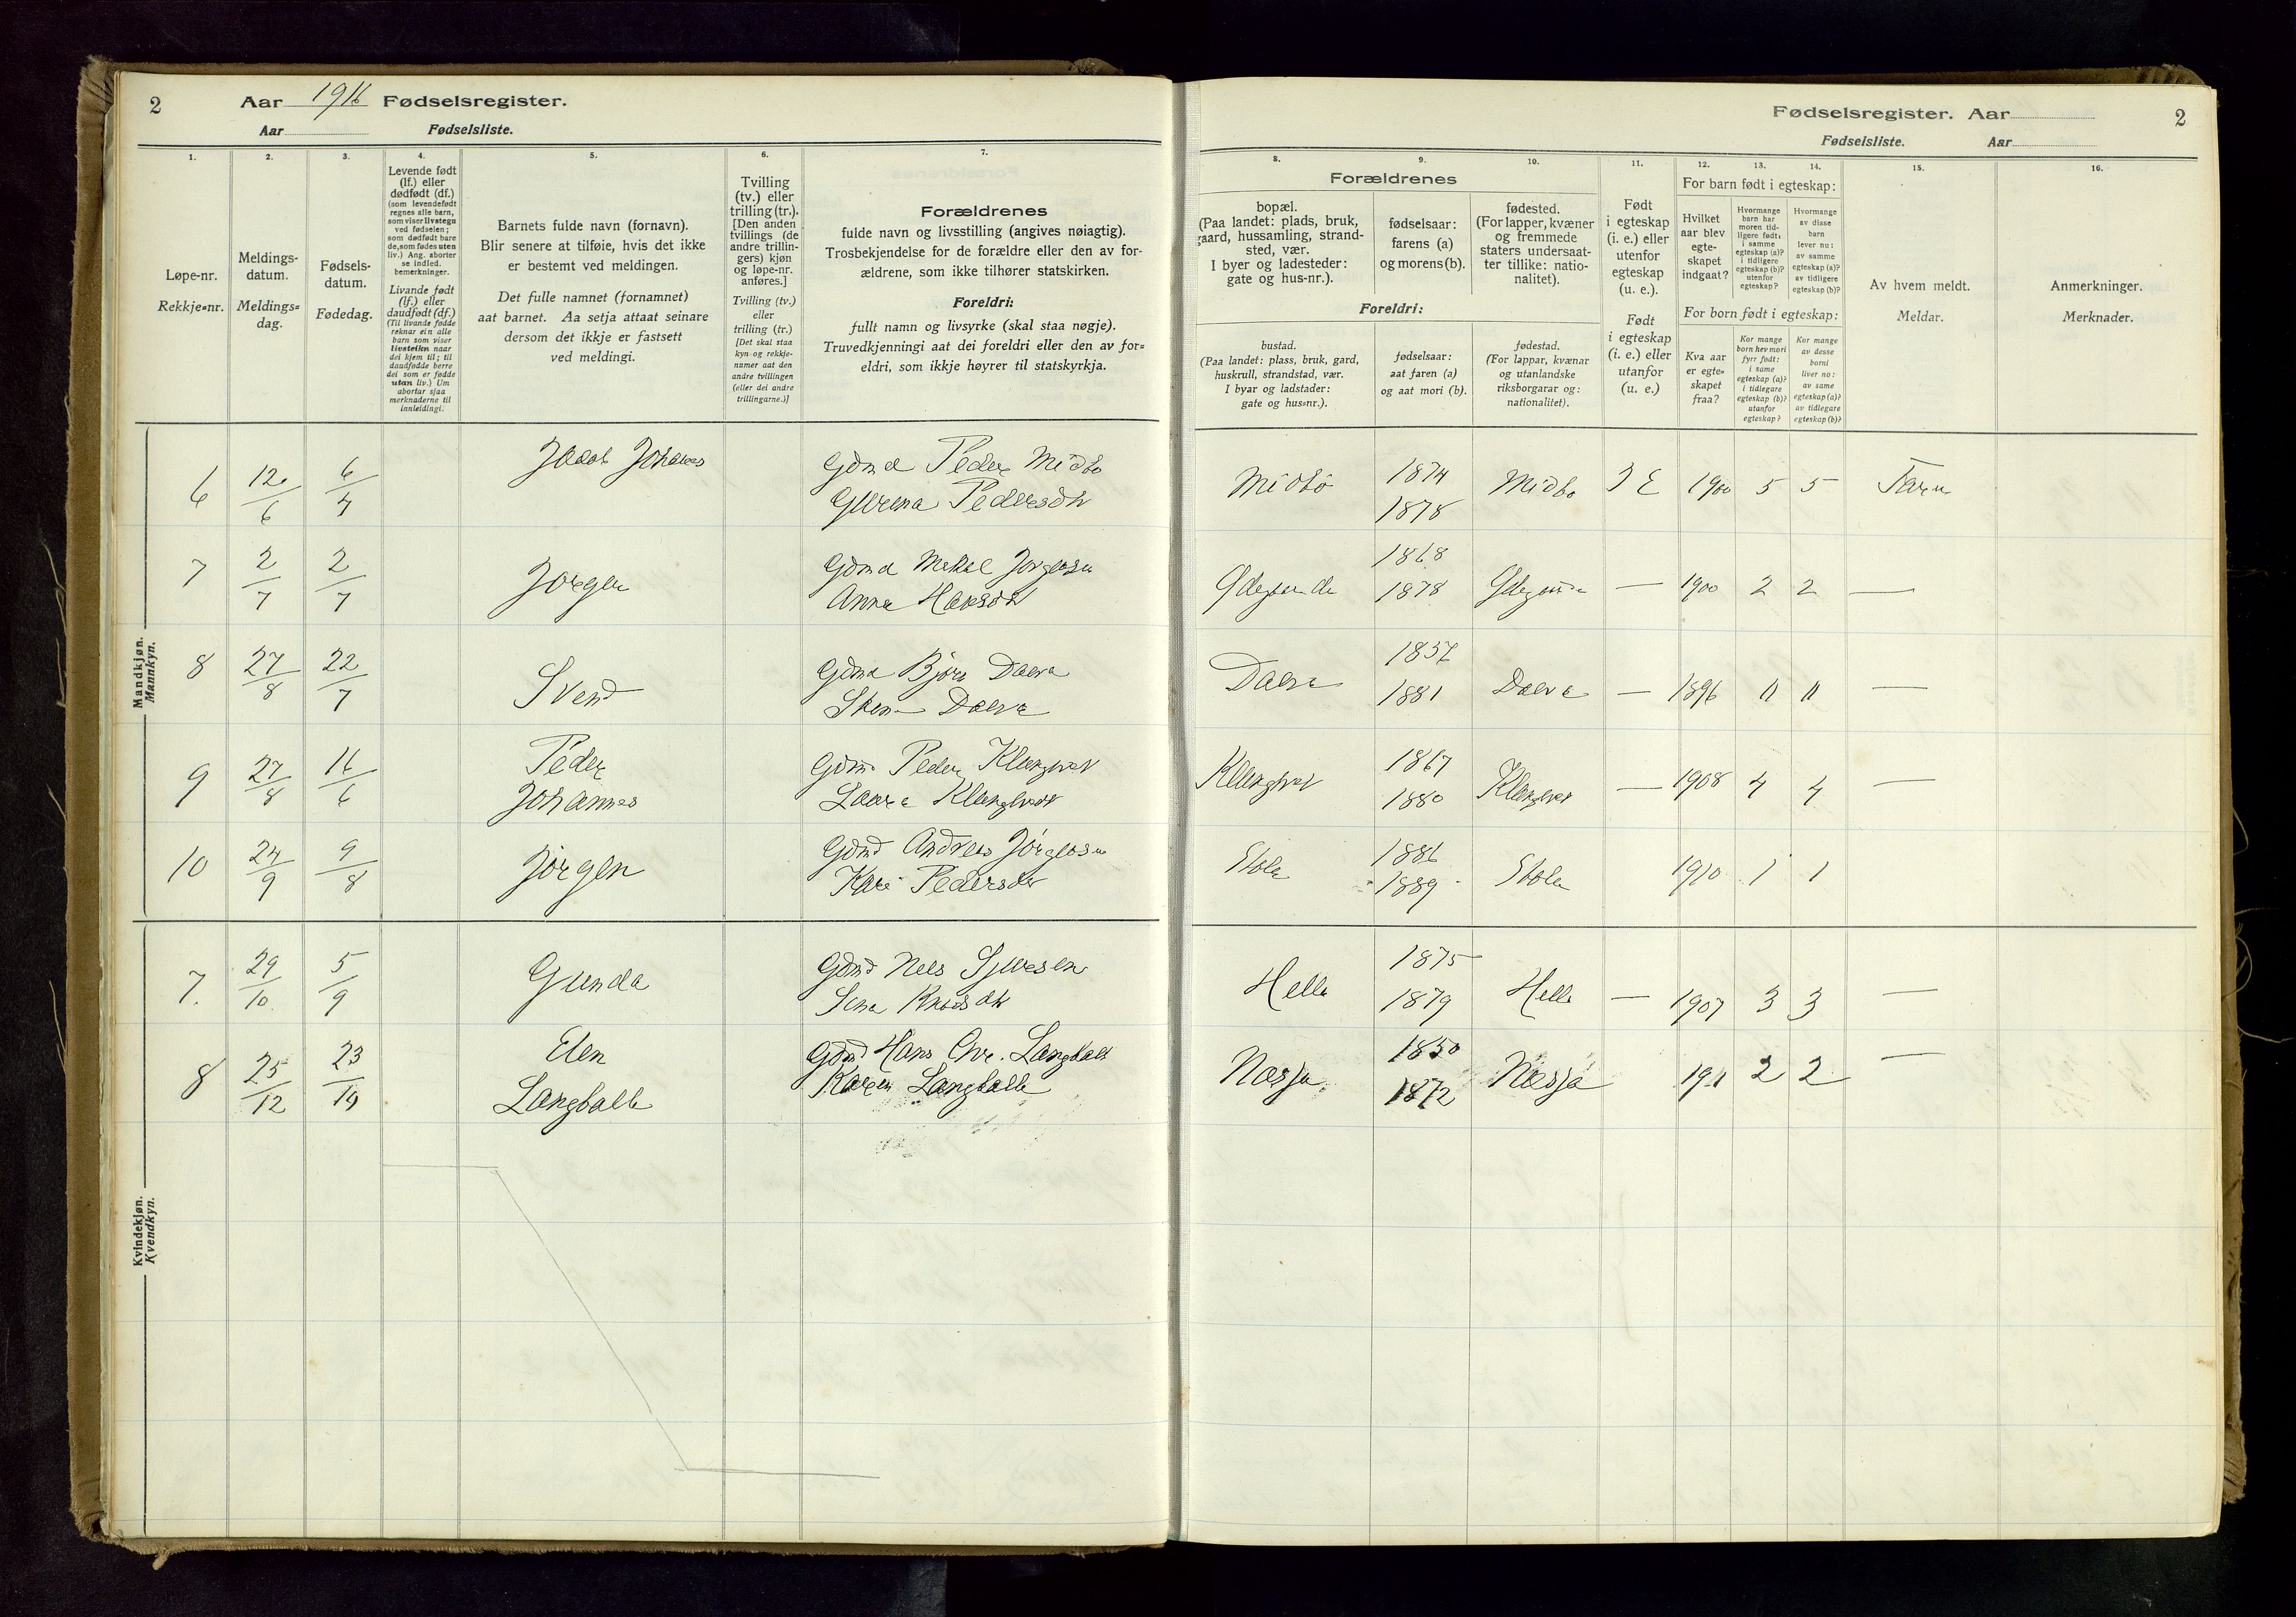 2 Aar 1916 Fødselsregister.
Aar Fødselsliste.
1. 2. 3. 4. 5. 6. 7.
Løpe-nr.
Rekkje=nr.
Meldings-
datum.
Meldings=
dag.
Fødsels-
datum.
Fødedag.
Levende født
(lf.) eller
dødfødt (df.)
(som levendefødt
regnes alle barn,
som viser livstegn
ved fødselen;
som dødfødt bare
de, som fødes uten
liv.) Ang. aborter
se indled.
bemerkninger.
Livande født
(lf.) eller
daudfødt (df.)
(Til livande fødde
reknar ein alle
barn som viser
livsteikn naar
dei kjem til; til
daudfødde berre
dei som er fødde
utan liv.) Um
abortar sjaa
merknaderne til
innleidingi.
Barnets fulde navn (fornavn).
Blir senere at tilføie, hvis det ikke
er bestemt ved meldingen.
Det fulle namnet (fornamnet)
aat barnet. Aa setja attaat seinare
dersom det ikkje er fastsett
ved meldingi.
Tvilling
(tv.) eller
trilling (tr.).
[Den anden
tvillings (de
andre trillin-
gers) kjøn
og løpe-nr.
anføres.]
Tvilling (tv.)
eller
trilling (tr.)
[Det skal staa
kyn og rekkje-
numer aat den
andre tvillingen
(eller dei andre
trillingarne.)]
Forældrenes
fulde navn og livsstilling (angives nøiagtig).
Trosbekjendelse for de forældre eller den av for-
ældrene, som ikke tilhører statskirken.
Foreldri:
fullt namn og livsyrke (skal staa nøgje).
Truvedkjenningi aat dei foreldri eller den av for=
eldri, som ikkje høyrer til statskyrkja.
Mandkjøn.
Mannkyn.
6 12/6 6/4 Jacob Johannes Gdmd Peder Midbø
Gurina Pedersdtr
7 2/7 2/7 Jørgen Gdmd Mikal Jørgensen
Anna Hansdtr
8 27/8 22/7 Svend Gdmd Bjørn
9 27/8 16/6 Peder
Johannes Gdmd Peder
10 24/9 9/8 Jørgen Gdmd Andreas Jørgensen
Kari Pedersdtr
Kvindekjøn.
Kvendkyn.
7. 29/10 5/9 Gunda Gdmd Nels
8 25/12 23/10 Elen
Langballe Gdmd Hans Chr. Langballe
Karen Langballe
Fødselsregister. Aar 2
Fødselsliste. Aar
8. 9. 10. 11. 12. 13. 14. 15. 16.
Forældrenes
bopæl.
(Paa landet: plads, bruk,
gaard, hussamling, strand-
sted, vær.
I byer og ladesteder:
gate og hus-nr.).
fødselsaar:
farens (a)
og morens (b).
fødested.
(For lapper, kvæner
og fremmede
staters undersaat-
ter tillike: natio-
nalitet).
Foreldri:
bustad.
(Paa landet: plass, bruk, gard,
huskrull, strandstad, vær.
I byar og ladstader:
gate og hus=nr.).
fødselsaar:
aat faren (a)
og aat mori (b).
fødestad.
(For lappar, kvænar
og utanlandske
riksborgarar og:
nationalitet).
Født
i egteskap
(i. e.) eller
utenfor
egteskap
(u. e.).
Født
i egteskap
(i. e.) eller
utanfor
(u. e.)
For barn født i egteskap:
Hvilket
aar blev
egte-
skapet
indgaat?
Hvormange
barn har
moren tid-
ligere født:
i samme
egteskap (a)?
i tidligere
egteskap (b)?
utenfor
egteskap?
Hvormange
av disse
barn
lever nu:
av samme
egteskap (a)?
av tidligere
egteskap (b)?
For born født i egteskap:
Kva aar
er egte=
skapet
fraa?
Kor mange
born hev mori
fyrr født:
i same
egteskap (a)?
i tidlegare
egteskap (b)?
utanfor
egteskap?
Kor mange
av desse
borni
liver no:
av same
egteskap (a)?
av tidlegare
egteskap (b)?
Av hvem meldt.
Meldar.
Anmerkninger.
Merknader.
Midbø 1874
1878 Midbø I E 1900 5 5 Faren
1868
1878 — 1900 2 2 —
1881 — 1896 11 11 —
1867
1880 — 1908 4 4 —
Stole 1886
1889 Stole 1910 1 1
Helle 1875
1879 Helle — 1907 3 3 —
Næsja 1850
1872 Næsja 1911 2 2 —